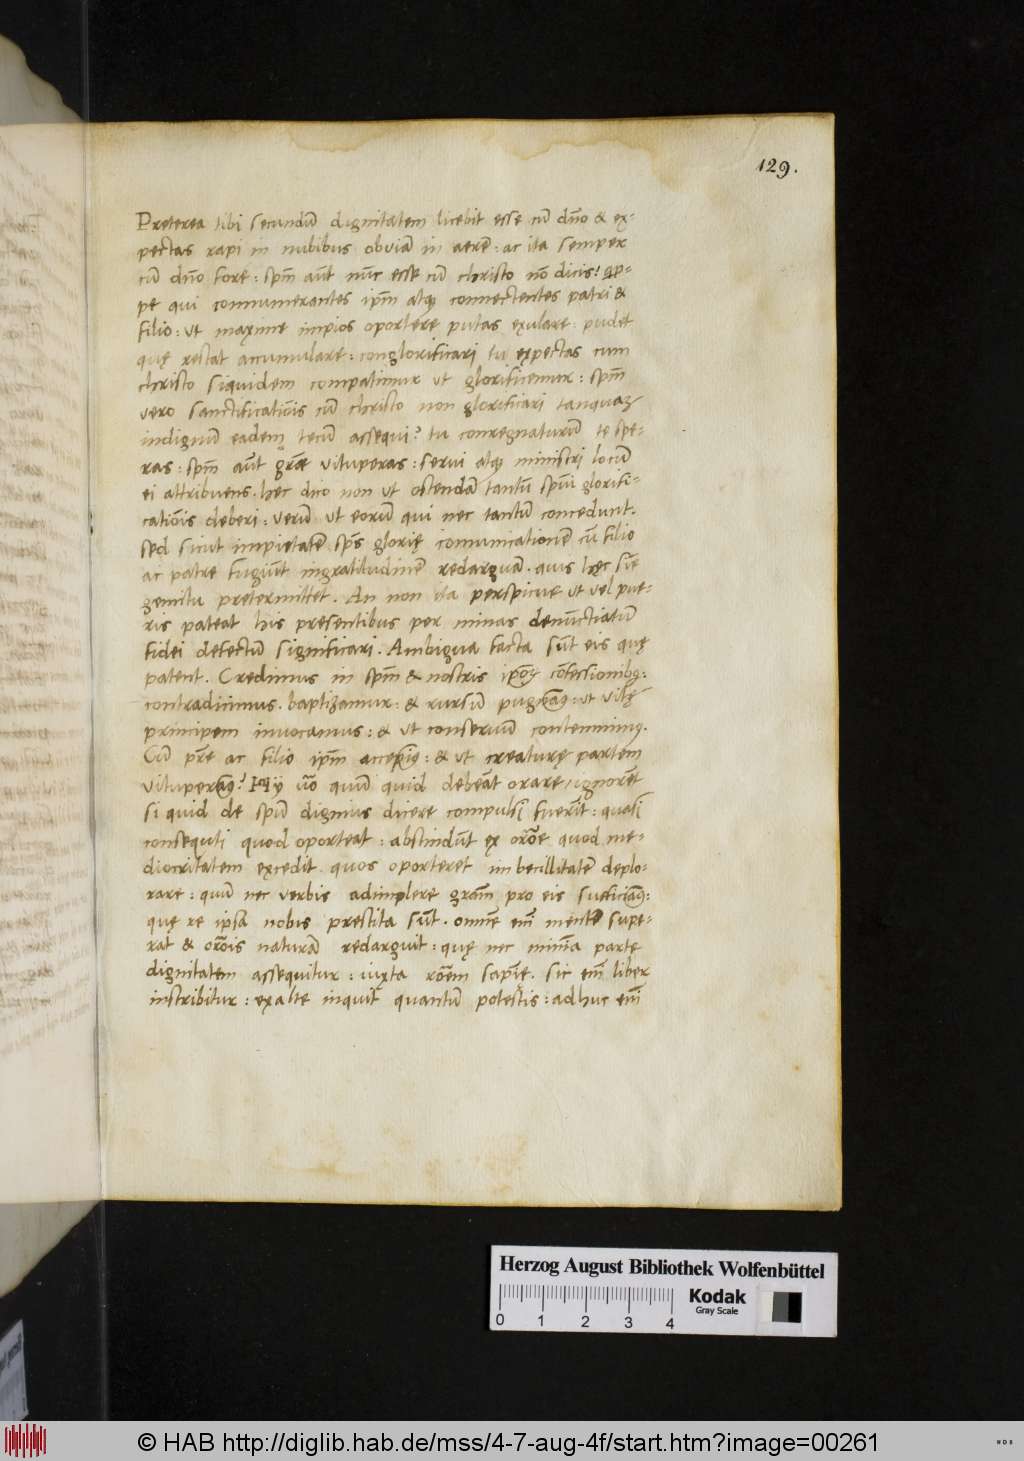 129.
Preterea tibi secundũ dignitatem licebit esse cũ dño & ex-
pectas rapi in nubibus obviã in aerẽ : ac ita semper
cũ dño fore : spm̃ aũt nũc esse cũ christo nõ dicis? qp-
pe qui connumerantes ipm̃ atq̨ connectentes patri &
filio : ut maxime impios oportere putas exulare . pudet
quę restat accumulare : conglorificari tu expectas cum
christo siquidem compatimur ut glorificemur : spm̃
vero sanctificatiõis cũ christo non glorificari tanquaʒ
indignũ eadem tecũ assequi? tu conregnaturũ te spe-
ras : spm̃ aũt grãe vituperas : servi atq̨ ministri locũ
ei attribuens . hec dico non ut ostendã tantũ spũi glorifi-
catiõis deberi : verũ ut eorũ qui nec tantũ concedunt .
sed sicut impietatẽ spũs glorię comunicationẽ cũ filio
ac patre fugiũt ingratitudinẽ redarguã . quis hęc sĩe
gemitu pretermittet . An non ita perspicue ut vel pue-
ris pateat his presentibus per minas denũctiatũ
fidei defectũ significari . Ambigua facta sũt eis quę
patent . Credimus in spm̃ & nostris confessionibq̨ :
contradicimus . baptizamur : & rursũ pugnamq̨ : ut vitę
principem invocamus : & ut conservũ contemnimq̨ .
Cũ pr̃e ac filio ipm̃ accepimq̨ : & ut creaturę partem
vituperamq̨? Hÿ ũo quũ quid debeãt orare ignorẽt
si quid de spũ dignius dicere compulsi fuerĩt : quasi
consequti quod oporteat : abscindũt ex orõe quod me-
diocritatem excedit . quos oporteret imbecillitatẽ deplo-
rare : quũ nec verbis adimplere grãm pro eis sufficiamq̨ :
quę re ipsa nobis prestita sũt . omnẽ em̃ mentẽ supe-
rat & orõis naturã redarguit : quę nec minĩa partę
dignitatem assequitur : iuxta rõem sapĩę . sic em̃ liber
inscribitur : exalte inquit quantũ potestis : adhuc em̃
Herzog August Bibliothek Wolfenbüttel
0 1 2 3 4
Kodak
Gray Scale
© HAB http://diglib.hab.de/mss/4-7-aug-4f/start.htm?image=00261